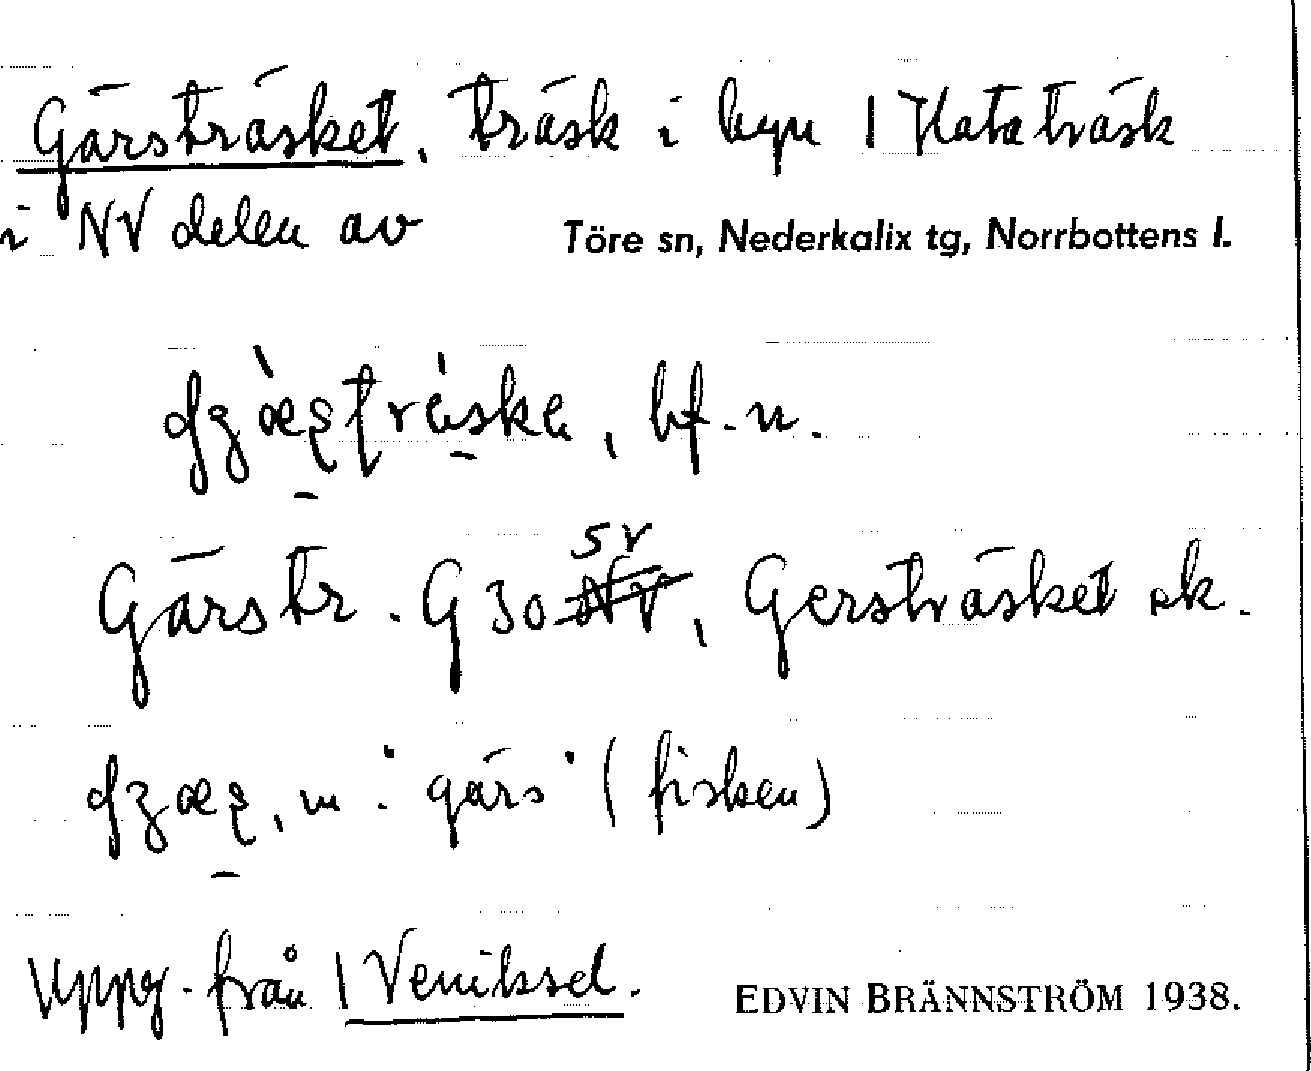 Gärsträsket, träsk i byn 1 Hataträsk
i NV delen av Töre sn, Nederkalix tg, Norrbottens l.
bf. n.
Gärstr. G 30 SV, Gersträsket ek.
m. ˈgärsˈ (fisken)
Uppg. från 1 Veniksel. EDVIN BRÄNNSTRÖM 1938.